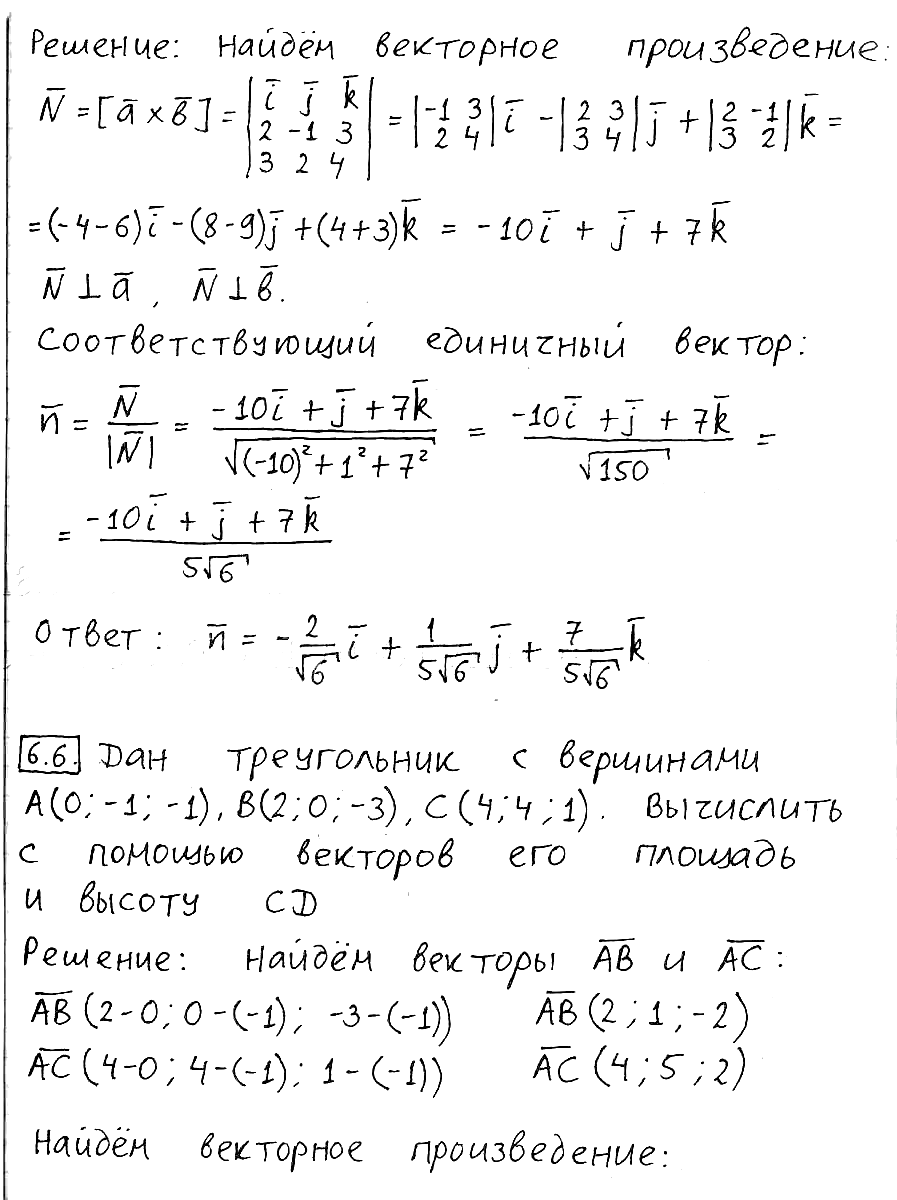 Решение: Найдём векторное произведение:
N̄ = [ā × b̄] = |ī j̄ k̄; 2 -1 3; 3 2 4| = |-1 3; 2 4| ī - |2 3; 3 4| j̄ + |2 -1; 3 2| k̄ =
= (-4-6)ī - (8-9)j̄ + (4+3)k̄ = -10ī + j̄ + 7k̄
N̄ ⊥ ā, N̄ ⊥ b̄.
Соответствующий единичный вектор:
n̄ = N̄/|N̄| = (-10ī + j̄ + 7k̄)/√((-10)² + 1² + 7²) = (-10ī + j̄ + 7k̄)/√150 =
= (-10ī + j̄ + 7k̄)/5√6
Ответ: n̄ = -2/√6 ī + 1/5√6 j̄ + 7/5√6 k̄
6.6. Дан треугольник с вершинами
A(0; -1; -1), B(2; 0; -3), C(4; 4; 1). Вычислить
с помощью векторов его площадь
и высоту CD
Решение: Найдём векторы A̅B̅ и A̅C̅:
A̅B̅(2-0; 0-(-1); -3-(-1)) A̅B̅(2; 1; -2)
A̅C̅(4-0; 4-(-1); 1-(-1)) A̅C̅(4; 5; 2)
Найдём векторное произведение: